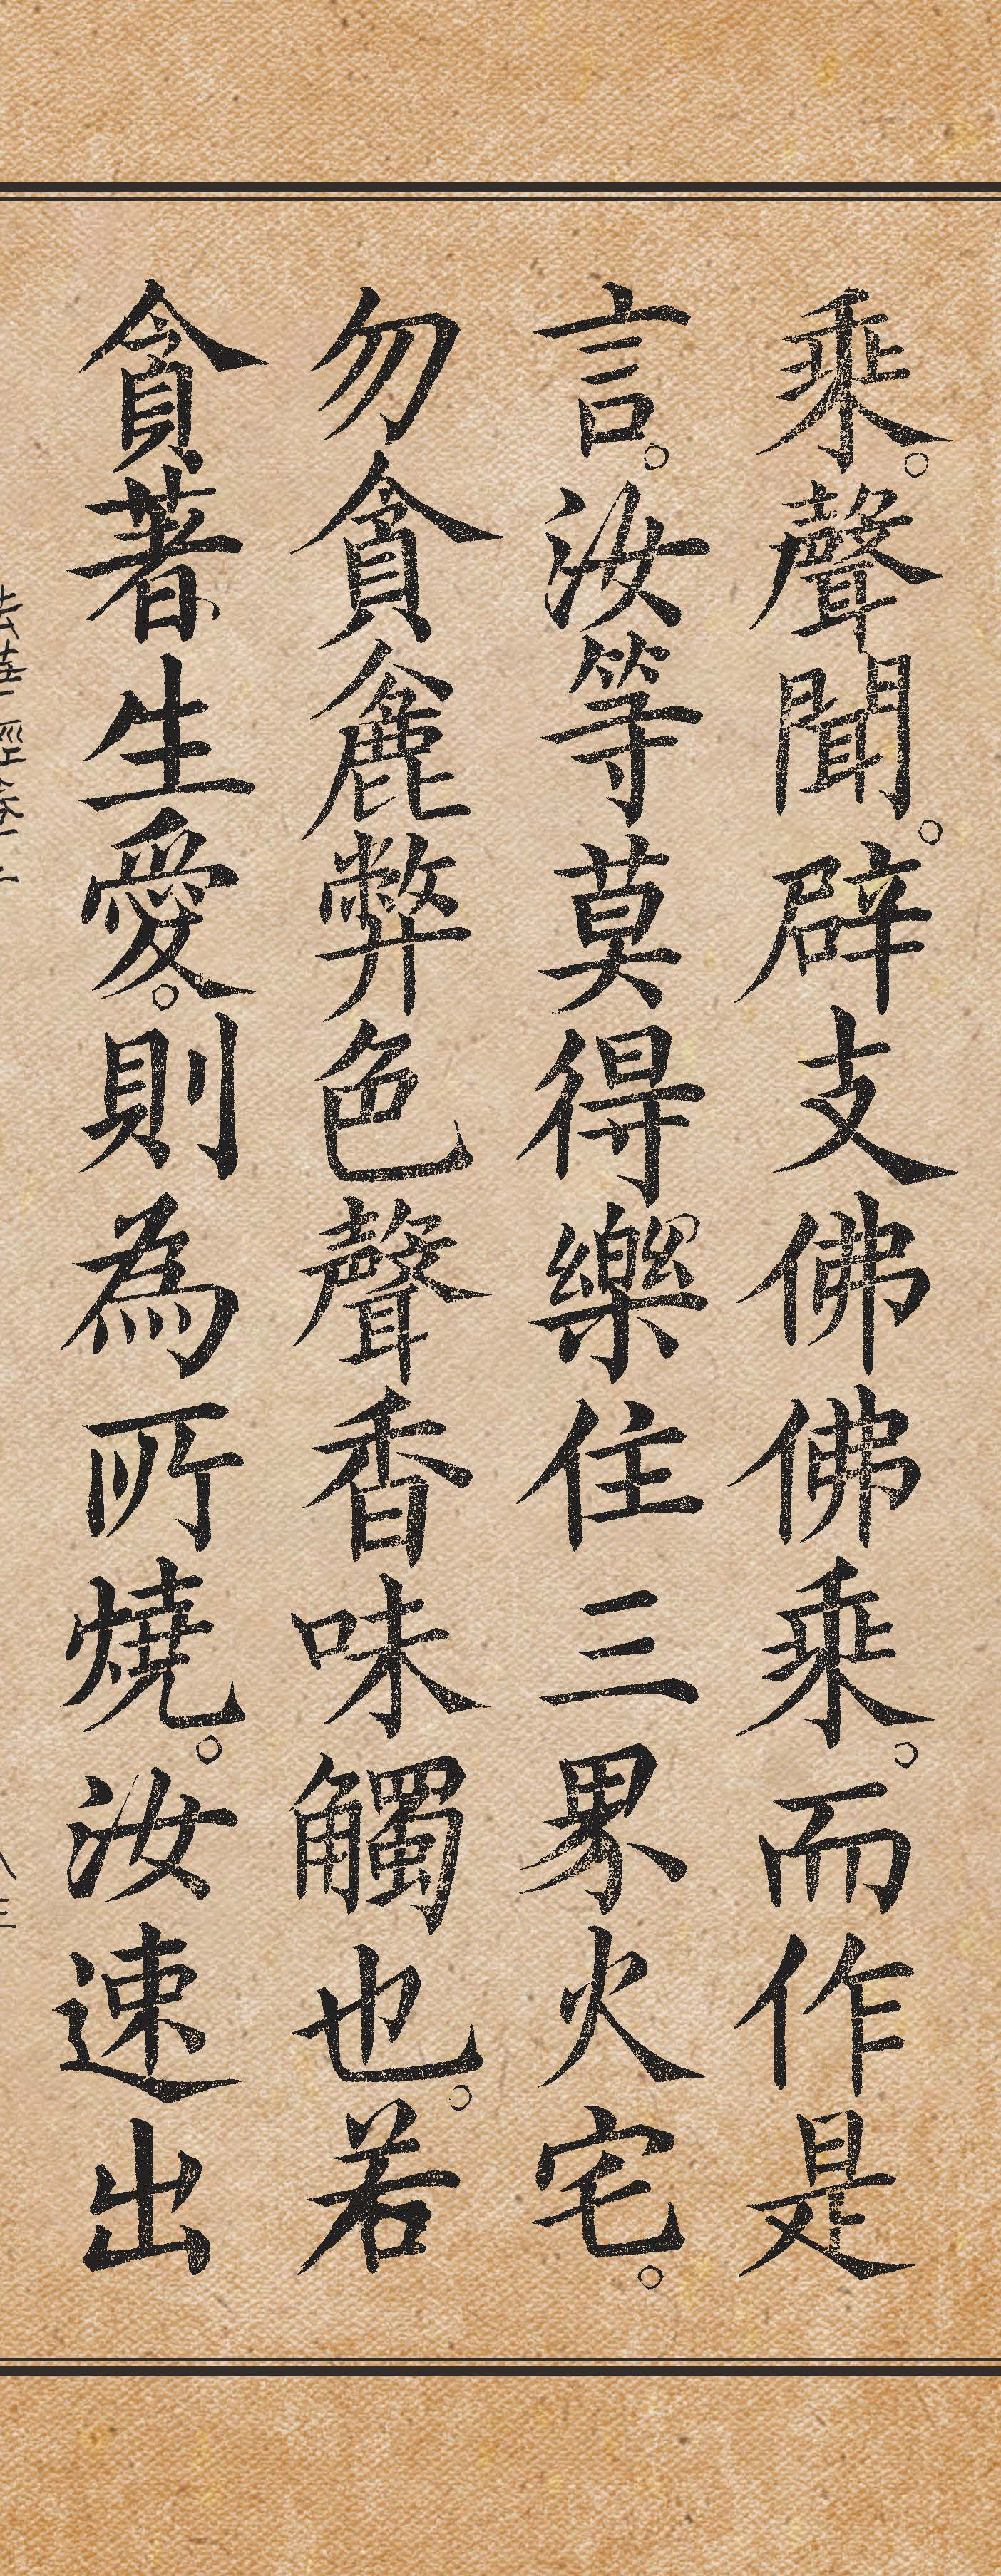 乘。聲聞。辟支佛佛乘。而作是
言。汝等莫得樂住三界火宅。
勿貪麁弊色聲香味觸也。若
貪著生愛。則為所燒。汝速出